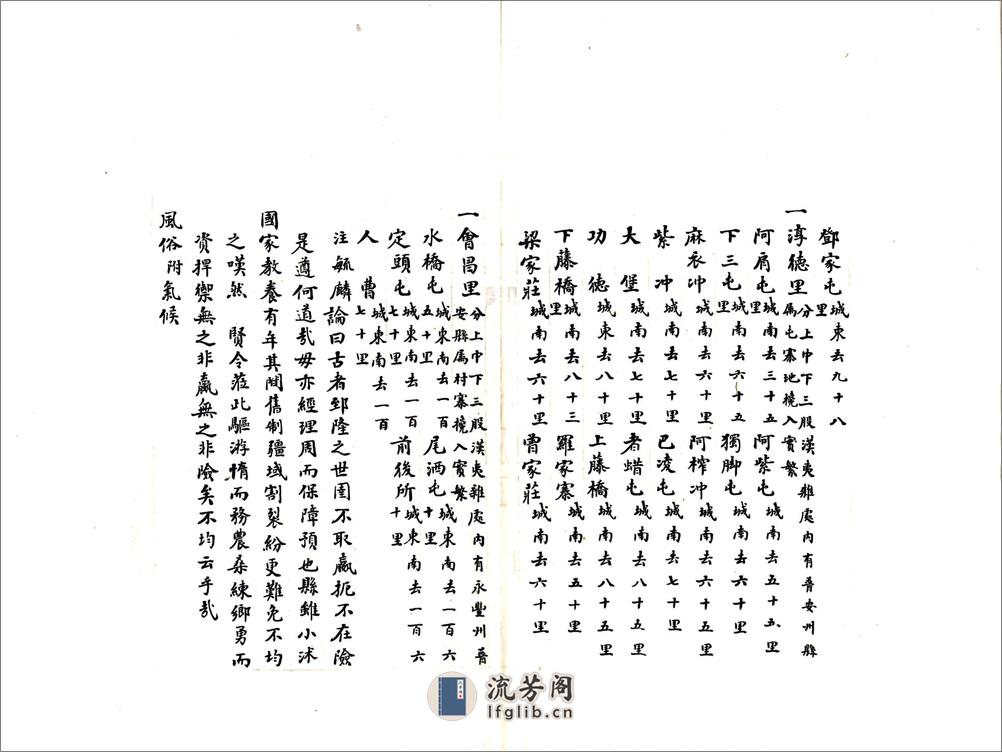 鄧家屯城東去九十八里
一淳德里分上中下三股漢夷雜處内有普安州縣屬屯寨地撓入實繁
阿肩屯城南去三十五里　阿紫屯城南去五十五里
下三屯城南去六十五里　獨脚屯城南去六十里
麻衣冲城南去六十里　阿榨冲城南去六十五里
紫冲城南去七十里　已凌屯城南去七十里
大堡城南去七十里　者蜡屯城南去八十五里
功德城東去八十里　上藤橋城南去八十五里
下藤橋城南去八十三里　羅家寨城南去五十里
梁家莊城南去六十里　曹家莊城南去六十里
一會昌里分上中下三股漢夷雜處内有永豐州普安縣屬村寨撓入實繁
水橋屯城東南去一百五十里　尾洒屯城東南去一百六十里
定頭屯城東南去一百七十里　前後所城東南去一百六十里
人曹城東南去一百七十里
注毓麟論曰古者郅隆之世圉不取贏扼不在險
是遵何道哉毋亦經理周而保障預也縣雖小沭
國家教養有年其間舊制疆域割裂紛更難免不均
之嘆然　賢令蒞此驅游惰而務農桑練鄉勇而
資捍禦無之非贏無之非險矣不均云乎哉
風俗附氣候
流芳阁
lfglib.cn